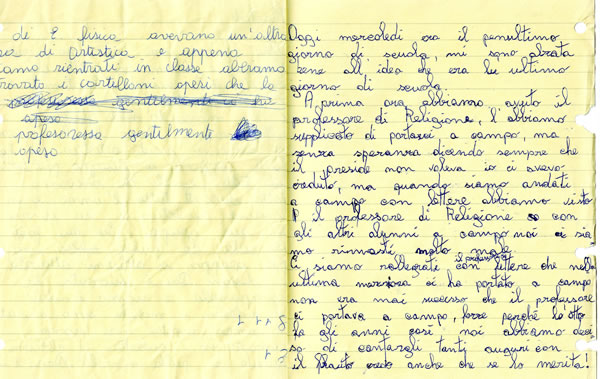 di E fisica avevano un'altra
ora di Artistica e appena
siamo rientrati in classe abbiamo
trovato i cartelloni apesi che la
gentilmente ha
apeso
profesoressa gentilmente
apeso
Oggi mercoledì era il penultimo
giorno di scuola, mi sono alzata
bene all'idea che era lu ultimo
giorno di scuola.
A prima ora abbiamo avuto il
professore di Religione, l'abbiamo
supplicato di portarci a campo, ma
senza speranza dicendo sempre che
il preside non voleva io ci avevo
creduto, ma quando siamo andati
a campo con lettere abbiamo visto
il professore di Religione con
gli altri alunni a campo noi ci sia
mo rimasti molto male.
Ci siamo rallegrati con il professore lettere che nella
ultima ci ha portato a campo
non era mai sucesso che il professore
ci portava a campo, forse perché lo otto
fa gli anni così noi abbiamo deci
so di cantargli tanti auguri con
il flauto credo anche che se lo merita!
8 + 1 1
2 1